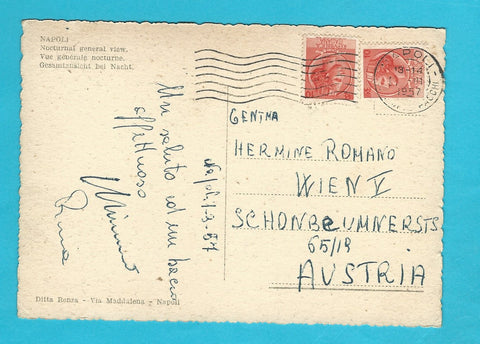 NAPOLI
Nocturnal general view.
Vue générale nocturne.
Gesamtansicht bei Nacht.
Un saluto ed un bacio
affettuoso
Napoli 1-9-57
GENTMA
HERMINE ROMANO
WIEN V
SCHONBRUMNERSTS
65/19
AUSTRIA
1957
Ditta Renza - Via Maddalena - Napoli